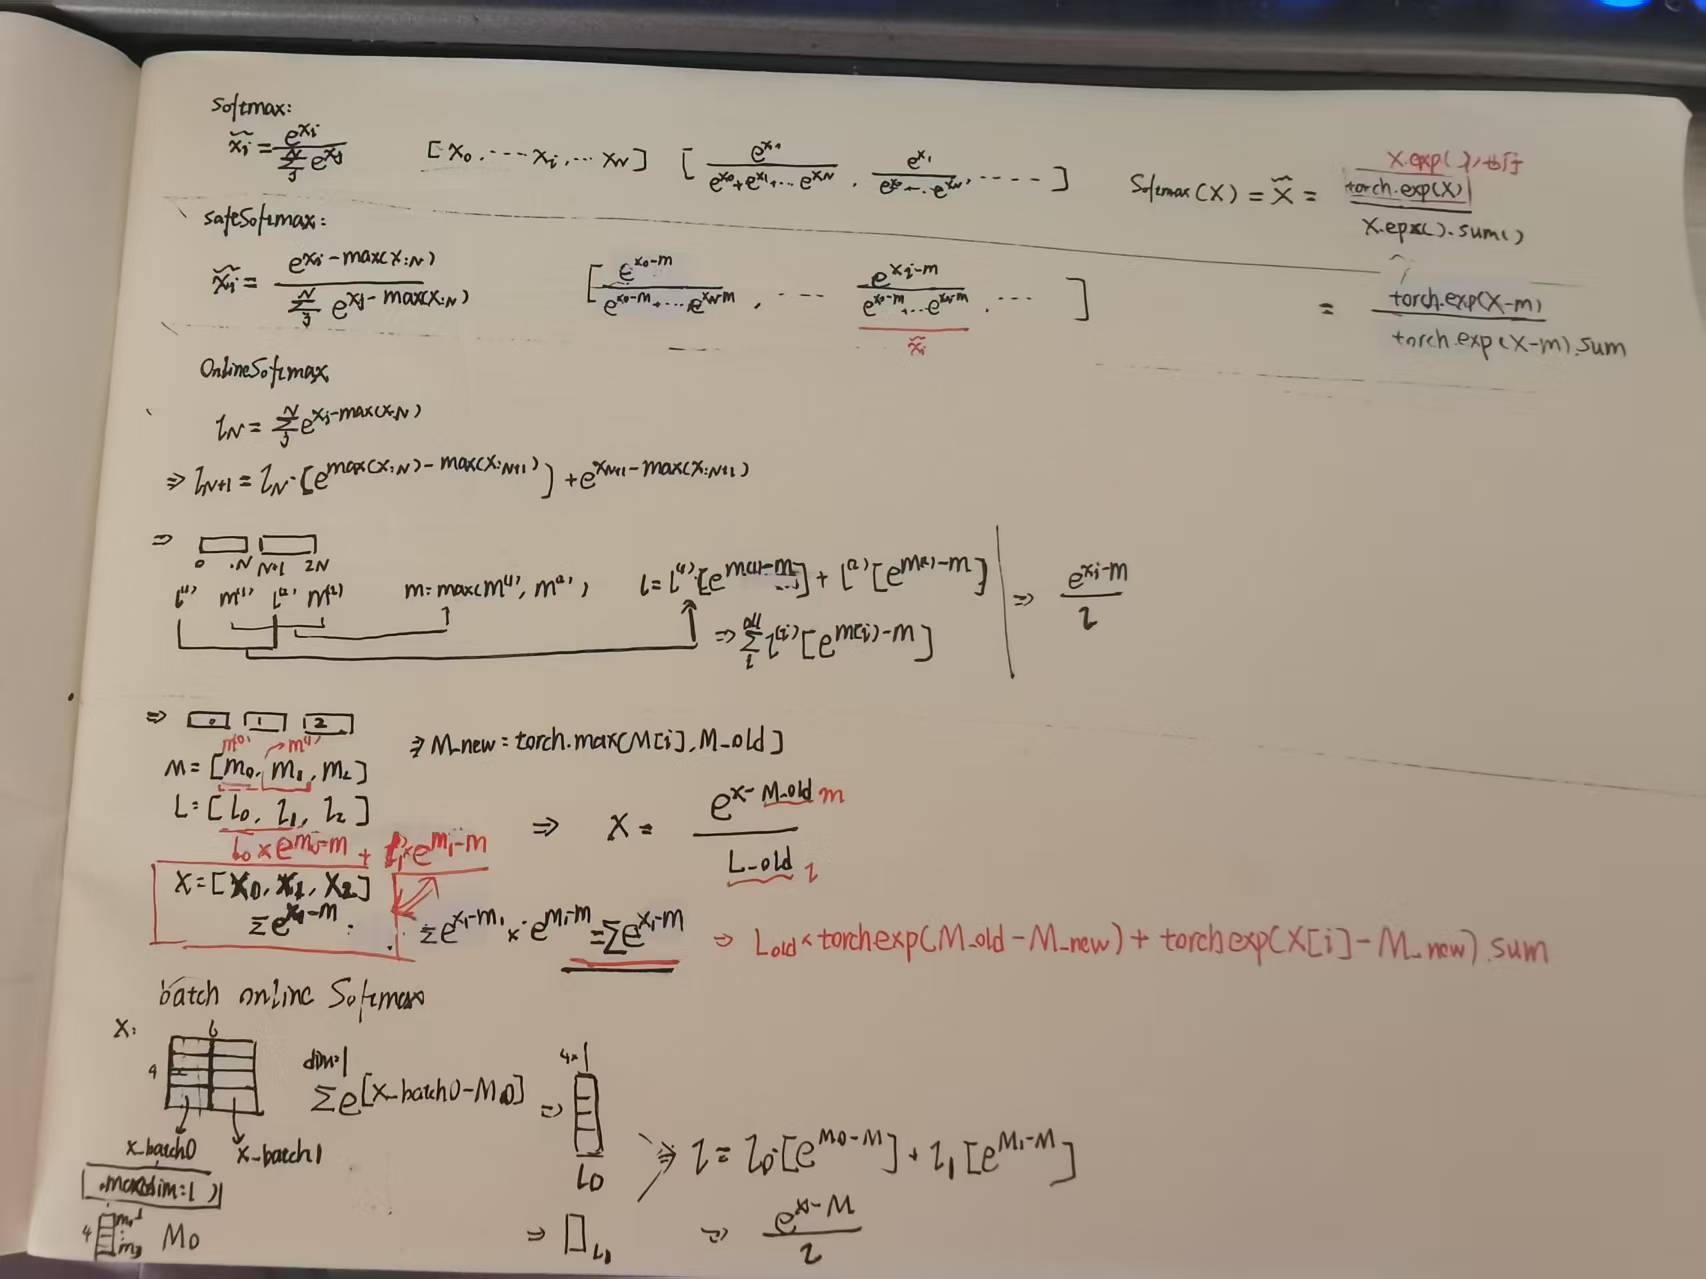 Softmax:
x̃i = e^xi / Σ_j^N e^xj   [x0, ---- xi, ··· xN]   [ e^x· / e^x0+e^x1+...e^xN , e^x1 / e^x0--·e^xN, ---- ]   Softmax(X) = X̃ = torch.exp(X) / X.epx().sum()
X.exp( )
safeSoftmax:
x̃i = e^xi-max(x:N) / Σ_j^N e^xj-max(x:N)   [ e^x0-m / e^x0-m+...e^xN-m , ---- e^xi-m / e^x0-m+...e^xN-m , ··· ]   = torch.exp(X-m) / torch.exp(X-m).sum
x̃i
OnlineSoftmax
lN = Σ_j^N e^xj-max(x:N)
⇒ lN+1 = lN·[e^max(x:N)-max(x:N+1)] + e^xN+1-max(x:N+1)
⇒
0 N N+1 2N
l(1) m(1) l(2) m(2)   m=max(m(1), m(2))   l = l(1)·[e^m(1)-m] + l(2)[e^m(2)-m]   ⇒ e^xi-m / l
⇒ Σ_i^all l(i)[e^m(i)-m]
⇒ 0 1 2
m(0) → m(1)
⇒ M_new = torch.max(M[i], M_old]
M = [m0, m1, m2]
L = [l0, l1, l2]   ⇒ X = e^x-M_old / L_old
m
l
l0 × e^m0-m + l1 × e^m1-m
X = [X0, X1, X2]
Σe^x1-m   Σe^x1-m1 × e^m1-m = Σe^x1-m   ⇒ Lold × torch.exp(M_old-M_new) + torch.exp(X[i]-M_new).sum
batch online Softmax
X: 6
4   dim=1   4×1
Σe[x_batch0-M0] ⇒
x_batch0   x_batch1   L0   ⇒ l = l0·[e^M0-M] + l1[e^M1-M]
.max(dim=1)
4   m0   m3   M0   ⇒ L1   ⇒ e^x-M / l